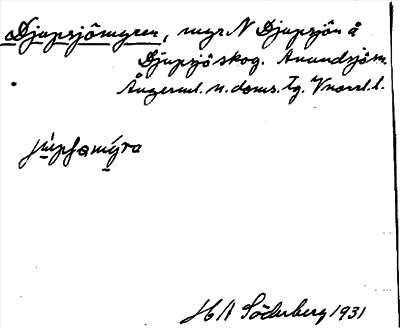 Djupsjömyren, myr N Djupsjön å
Djupsjö skog. Anundsjö sn.
Ångerml. n. doms. Tg. Vnorrl. l.
H A Söderberg 1931